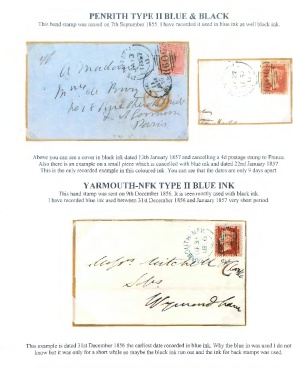 PENRITH TYPE II BLUE & BLACK
This hand stamp was issued on 7th September 1855. I have recorded it used in blue ink as well black ink.
A Madame
Mme de
Paris
Above you can see a cover in black ink dated 13th January 1857 and cancelling a 4d postage stamp to France.
Also there is an example on a small piece which is cancelled with blue ink and dated 22nd January 1857.
This is the only recorded example in this coloured ink. You can see that the dates are only 9 days apart
YARMOUTH-NFK TYPE II BLUE INK
This hand stamp was sent on 9th December 1856. It is seen mostly used with black ink.
I have recorded blue ink used between 31st December 1856 and January 1857 very short period.
Messrs Mitchell & Clarke
Solrs
Wymondham
This example is dated 31st December 1856 the earliest date recorded in blue ink. Why the blue in was used I do
know but it was only for a short while so maybe the black ink run out and the ink for back stamps was used.